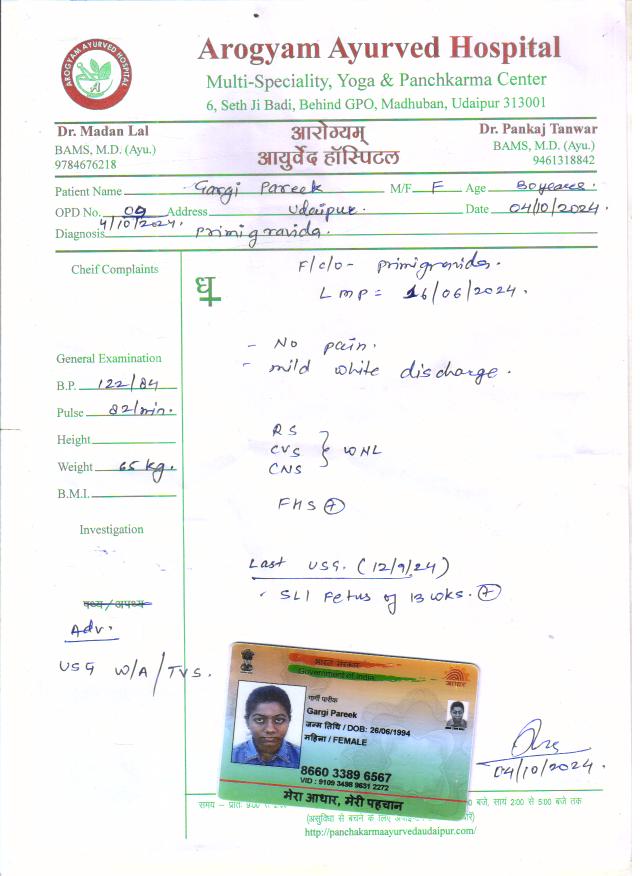 AROGYAM AYURVED HOSPITAL
Arogyam Ayurved Hospital
Multi-Speciality, Yoga & Panchkarma Center
6, Seth Ji Badi, Behind GPO, Madhuban, Udaipur 313001
Dr. Madan Lal
BAMS, M.D. (Ayu.)
9784676218
आरोग्यम्
आयुर्वेद हॉस्पिटल
Dr. Pankaj Tanwar
BAMS, M.D. (Ayu.)
9461318842
Patient Name Gargi Pareek M/F F Age 30 years.
OPD No. 09 Address Udaipur. Date 04/10/2024.
4/10/2024.
Diagnosis Primigravida.
Cheif Complaints
F/c/o- primigravida.
LMP = 16/06/2024.
- No pain.
- mild white discharge.
General Examination
B.P. 122/84
Pulse 82/min.
Height
Weight 65 kg.
B.M.I.
RS
CVS
CNS
WNL
FHS +
Investigation
Last USG. (12/9/24)
SLI Fetus of 13 wks. +
पथ्य/अपथ्य
Adv.
USG W/A/TVS.
भारत सरकार
Government of India
आधार
गार्गी पारीक
Gargi Pareek
जन्म तिथि / DOB: 26/06/1994
महिला / FEMALE
8660 3389 6567
VID : 9109 3498 9631 2272
मेरा आधार, मेरी पहचान
04/10/2024.
समय – प्रातः 9:00 से
बजे, सायं 2:00 से 5:00 बजे तक
(असुविधा से बचने के लिए
http://panchakarmaayurvedaudaipur.com/